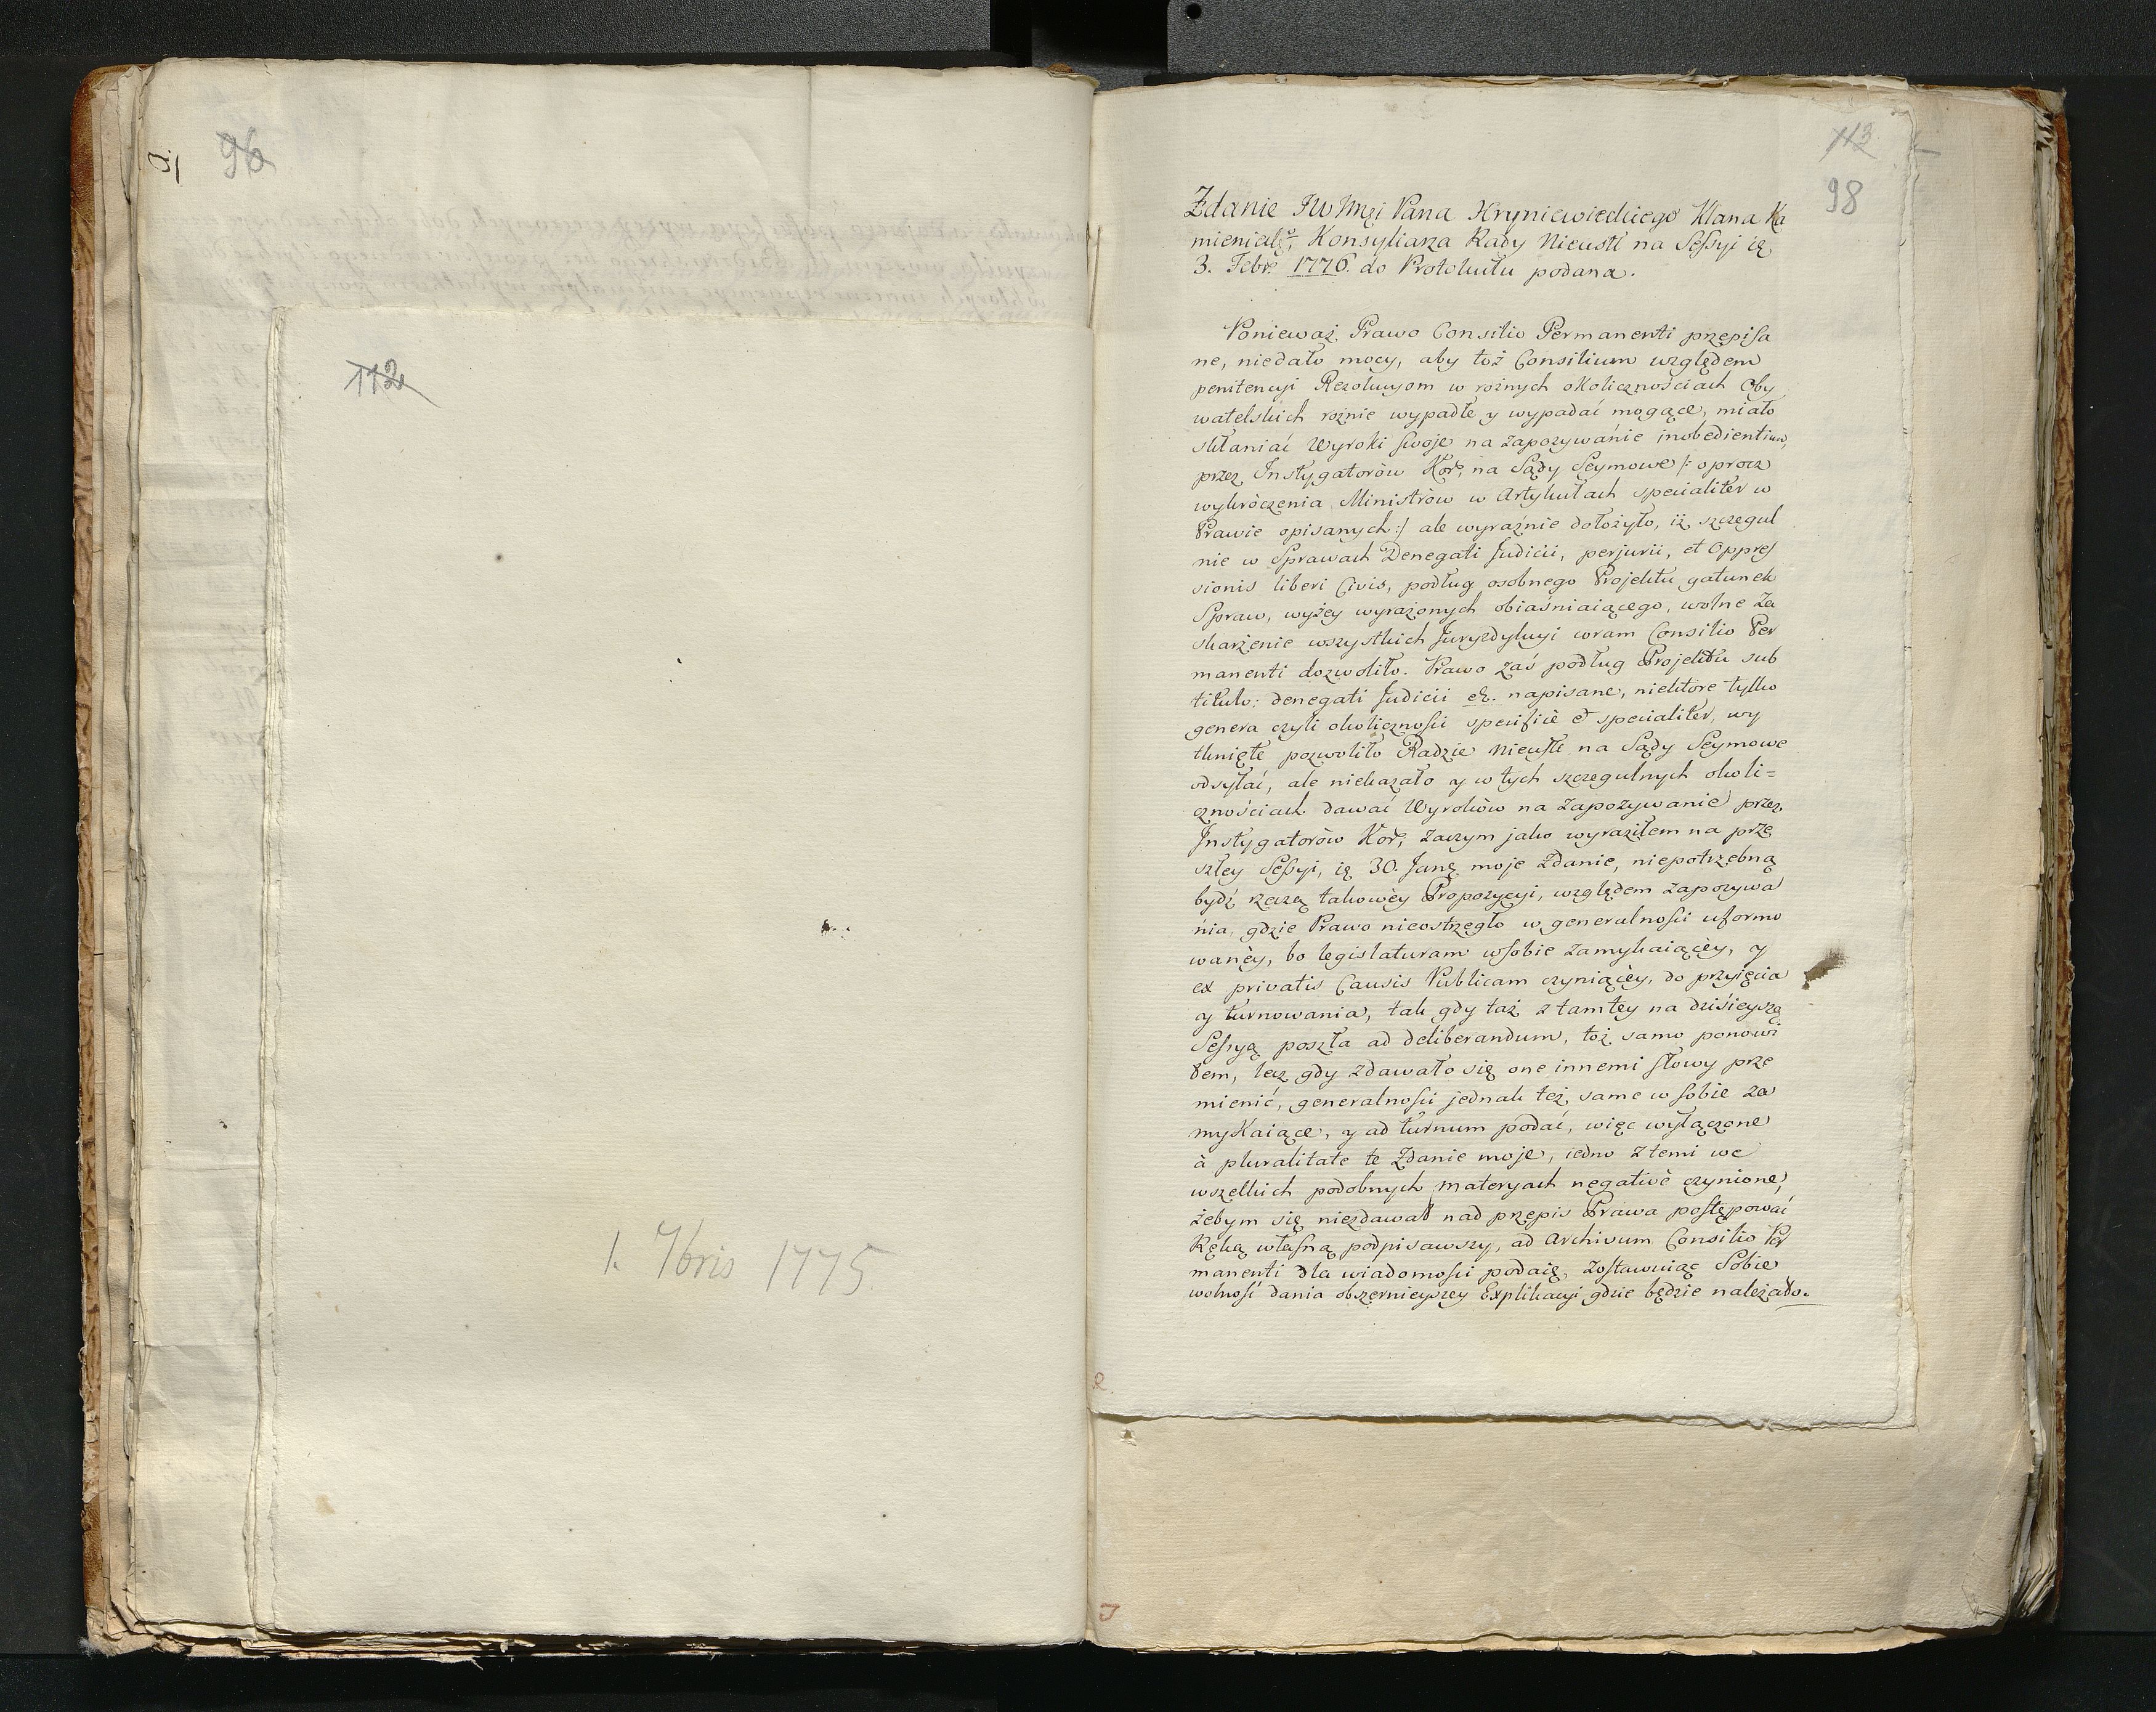 96
112
1. 7bris 1775.
113
98
Zdanie JW Jmći Pana Kryniewieckiego Kłana Ka
mieniecgo, Konsyliarza Rady Nieustt na Sessyi ię
3. Febr. 1776. do Protokułu podana.
Ponieważ Prawo Consilio Permanenti przepisa
ne, niedało mocy, aby toż Consilium względem
penitencyi Rezolucyom w rożnych okolicznościach Oby
watelskich rożnie wypadłe y wypadać mogące, miało
skłaniać Wyroki swoje na zapozywanie inobedientium,
przez Instygatorów Kor, na Sądy Seymowe /: oprocz
wykroczenia Ministrów w Artykułach specialiter w
Prawie opisanych :/ ale wyraźnie dołożyło, iż szczegul
nie w Sprawach Denegati Judicii, perjurii, et Oppres
sionis liberi Civis, podług osobnego Projektu gatunek
Spraw, wyżey wyrażonych obiaśniaiącego, wolne Za
skarżenie wszystkich Juryzdykcyi coram Consilio Per
manenti dozwoliło. Prawo zaś podług Projektu sub
titulo: denegati Judicii etz. napisane, niektore tylko
genera czyli okoliczności specificè et specialiter, wy
tknięte pozwoliło Radzie Nieustt na Sądy Seymowe
odsyłać, ale niekazało y w tych szczegulnych okoli=
cznościach dawać Wyroków na zapozywanie przez
Instygatorów Kor, zaczym jako wyraziłem na prze
szłey Sessyi, ię 30. Janę moje Zdanie, niepotrzebną
bydź rzeczą takowéy Propozycyi, względem zapozywa
nia, gdzie Prawo nieostrzegło w generalności uformo
wanéy, bo legislaturam w sobie zamykaiącéy, y
ex privatis Causis Publicam czyniącéy, do przyięcia
y turnowania, tak gdy taż z tamtéy na dzisieyszą
Sessyą poszła ad deliberandum, toż samo ponowi
łem, lecz gdy zdawało się one innemi słowy prze
mienić, generalności jednak też same w sobie za
mykaiące, y ad turnum podać, więc wyłączone
à pluralitate te Zdanie moje, iedno z temi we
wszelkich podobnych materyach negativè czynione,
żebym się niezdawał nad przepis Prawa postępować
Ręką własną podpisawszy, ad Archivum Consilio Per
manenti dla wiadomości podaię, zostawuiąc Sobie
wolność dania obszernieyszey Explikacyi gdzie będzie należało.